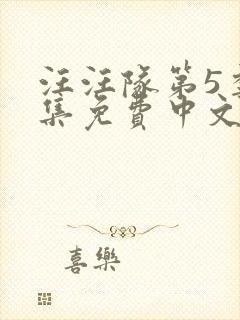 汪汪隊第5
集免費中文
喜樂